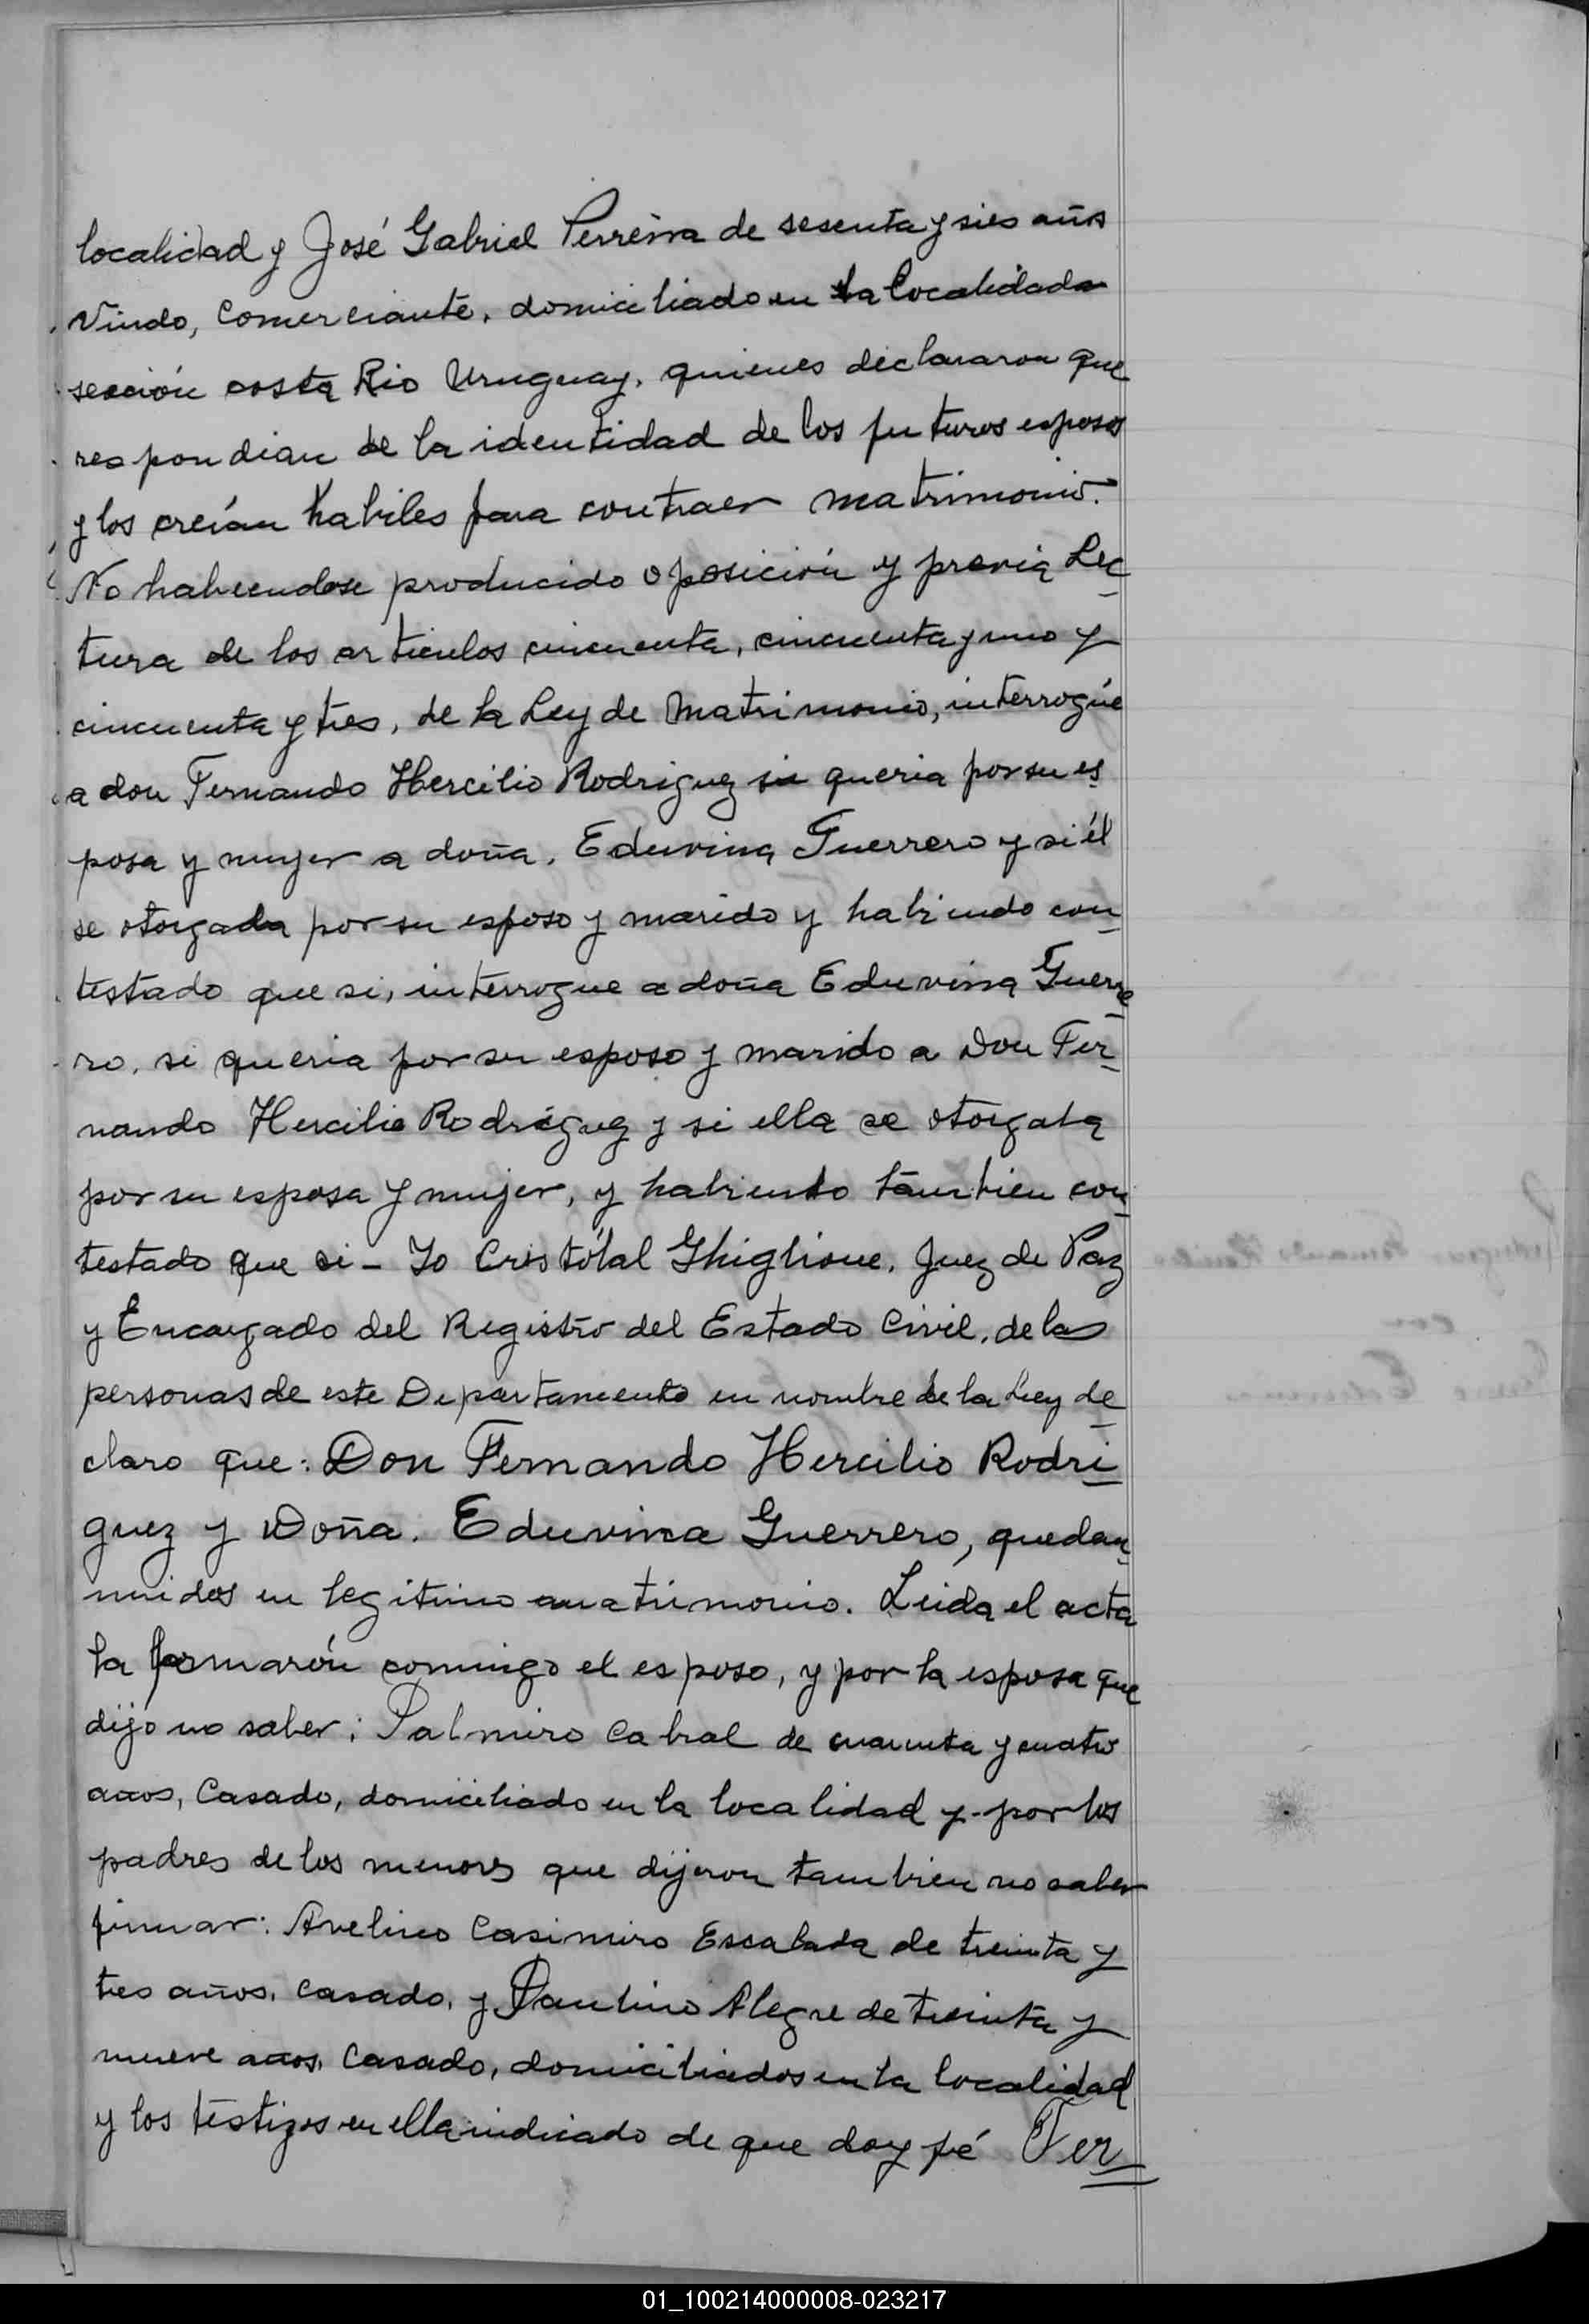 localidad y José Gabriel Perreira de sesenta y sies años
Viudo, Comerciante, domiciliado en la localidad
sección costa Rio Uruguay, quienes declararon que
respondian de la identidad de los futuros esposos
y los creían habiles para contraer matrimonio.
No habiendose producido oposición y previa Lec
tura de los articulos cincuenta, cincuenta y uno y
cincuenta y tres, de la Ley de Matrimonio, interrogúe
a don Fernando Hercilio Rodriguez si queria por su es
posa y mujer a doña. Eduvina Guerrero y si él
se otorgaba por su esposo y marido y habiendo con
testado que si, interrogue a doña Eduvina Guerre
ro, si queria por su esposo y marido a Don Fer
nando Hercilio Rodriguez y si ella se otorgaba
por su esposa y mujer, y habiendo tambien con
testado que si - Yo Cristóbal Ghiglione, Juez de Paz
y Encargado del Registro del Estado Civil, de las
personas de este Departamento en nombre de la Ley de
claro que: Don Fernando Hercilio Rodri
guez y Doña. Eduvina Guerrero, quedan
unidos en legitimo matrimonio. Leida el acta
la formarón comingo el esposo, y por la esposa que
dijo no saber; Palmiro Cabral de cuarenta y cuatro
años, Casado, domiciliado en la localidad y por los
padres de los menores que dijeron tambien no saber
firmar: Avelino Casimiro Escalada de treinta y
tres años, Casado, y Paulino Alegre de treinta y
nueve años, Casado, domiciliados en la localidad
y los testigos en ella indicado de que doy fé Fer
01_100214000008-023217